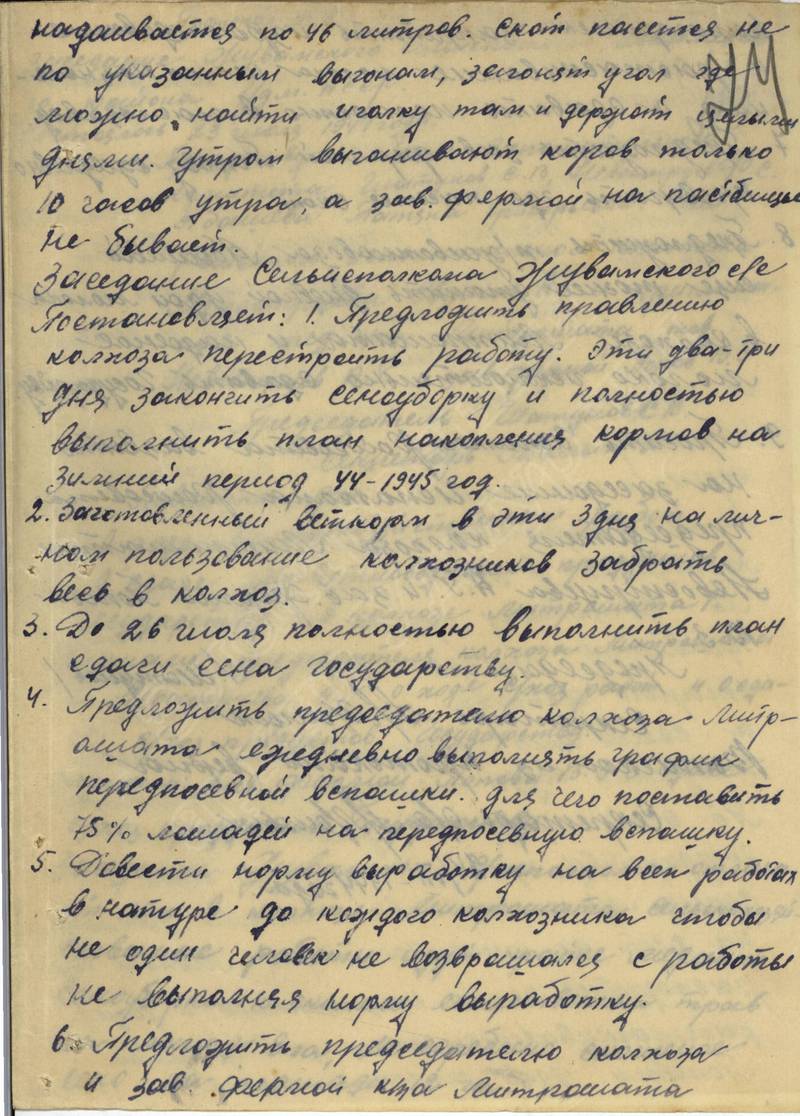 надаивается по 46 литров. Скот пасется не
по указанным выгонам, загонят угол где
можно найти иголку там и держат целыми
днями. Утром выганивают коров только
10 часов утра, а зав. фермой на пастбище
не бывает.
Заседание Сельисполкома с/с
Постановляет: 1. Предложить правлению
колхоза перестроить работу. Эти два-три
дня закончить сеноуборку и полностью
выполнить план накопления кормов на
зимний период 44-1945 год.
2. Заготовленный веткорм в эти 3 дня на лич-
ном пользование колхозников забрать
весь в колхоз.
3. До 26 июля полностью выполнить план
сдачи сена государству.
4. Предложить председателю колхоза Митр-
ошата ежедневно выполнять график
передпосевной вспашки. для чего поставить
75% лошадей на передпосевную вспашку.
5. Довести норму выработку на всех работах
в натуре до каждого колхозника чтобы
не один человек не возвращался с работы
не выполняя норму выработку.
6. Предложить председателю колхоза
и зав. фермой к/за Митрошата